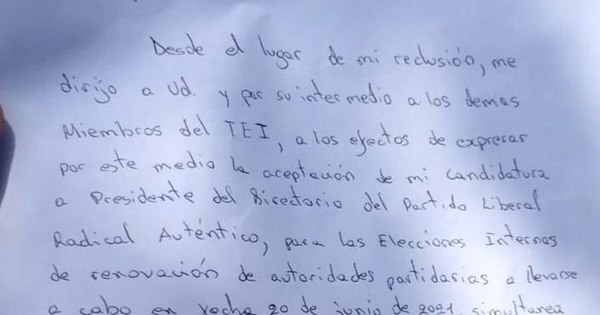 Desde el lugar de mi reclusión, me
dirijo a Ud. y por su intermedio a los demas
Miembros del TEI, a los efectos de expresar
por este medio la aceptación de mi candidatura
a Presidente del Directorio del Partido Liberal
Radical Auténtico, para las Elecciones Internas
de renovación de autoridades partidarias a llevarse
a cabo en fecha 20 de junio de 2021, simultanea